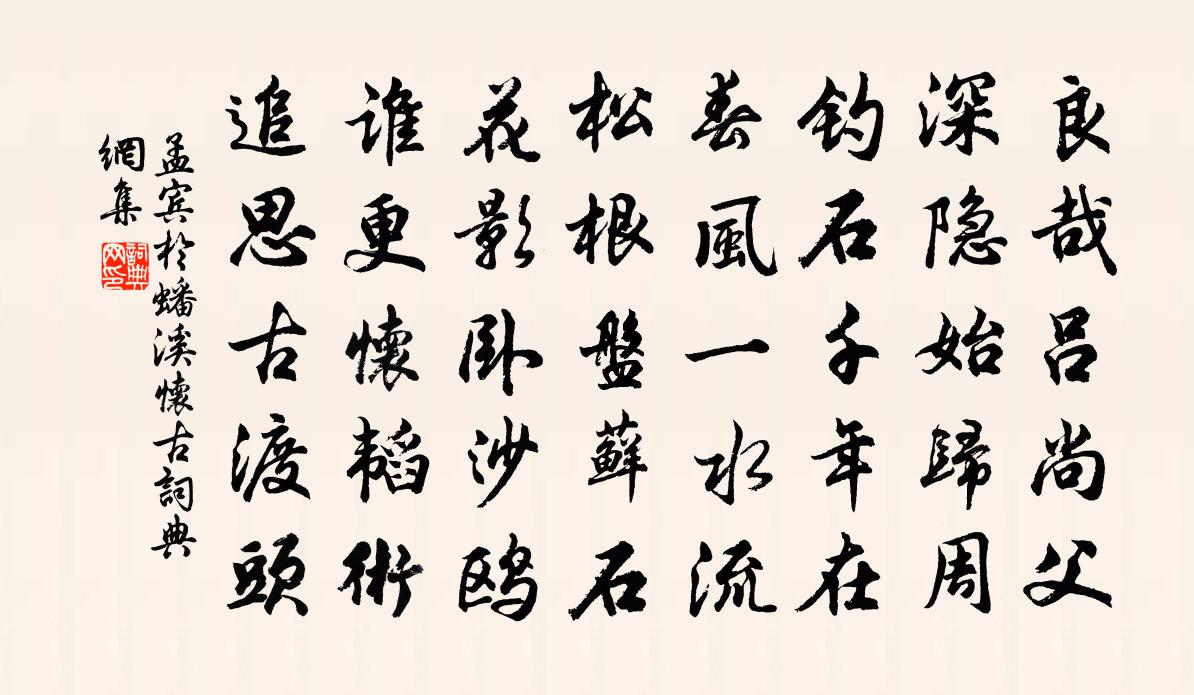 良哉吕尚父
深隐始歸周
钓石千年在
春風一水流
松根盤蘚石
花影卧沙鸥
誰更懷韬術
追思古渡頭
孟宾於蟠溪懷古詞典
網集
詞典
网印